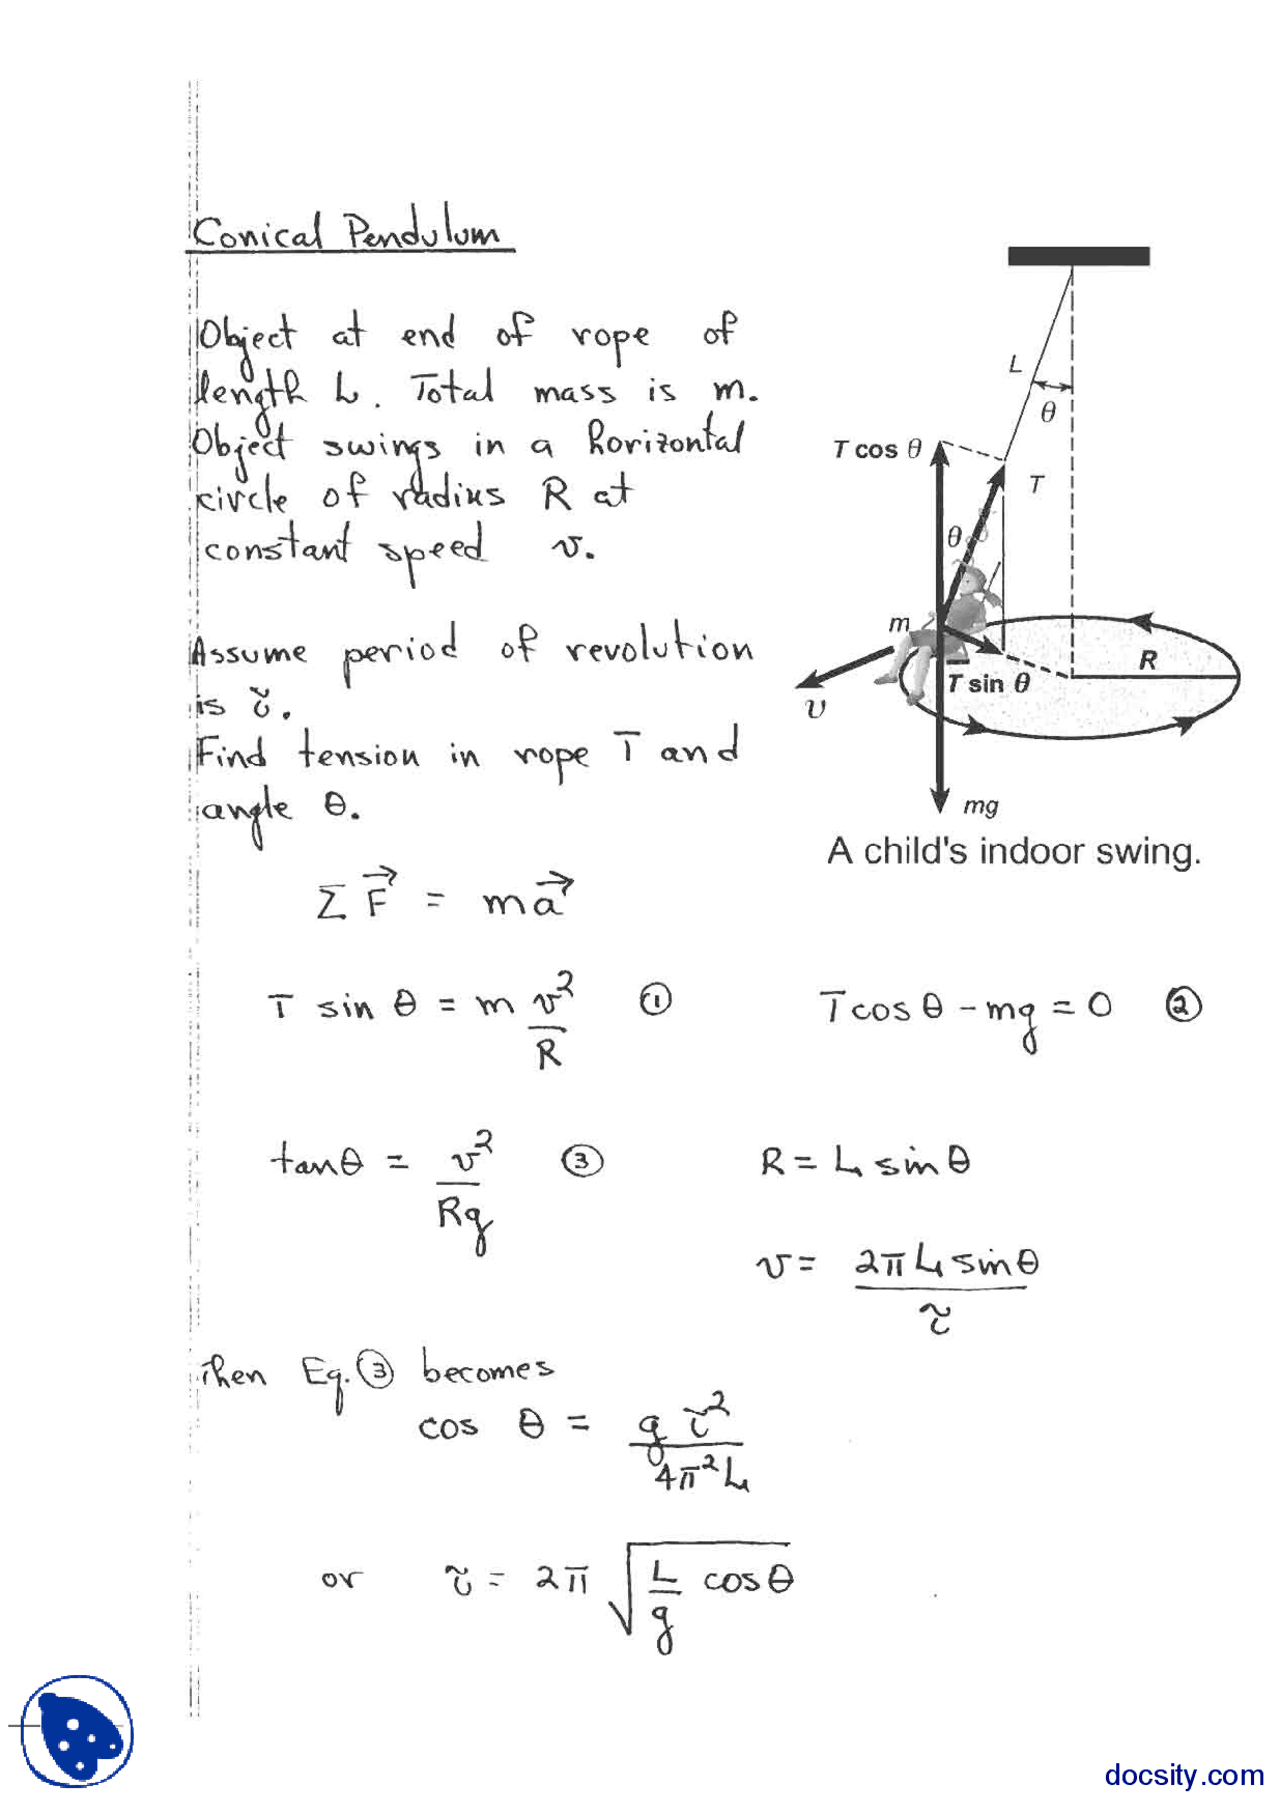 Conical Pendulum
Object at end of rope of
length L. Total mass is m.
Object swings in a horizontal
circle of radius R at
constant speed v.
Assume period of revolution
is τ.
Find tension in rope T and
angle θ.
L
θ
T cos θ
T
θ
m
R
T sin θ
v
mg
A child's indoor swing.
Σ F⃗ = m a⃗
T sin θ = m v²/R ①
T cos θ - mg = 0 ②
tan θ = v²/Rg ③
R = L sin θ
v = 2π L sin θ / τ
Then Eq. ③ becomes
cos θ = g τ² / 4π² L
or τ = 2π √(L/g cos θ)
docsity.com